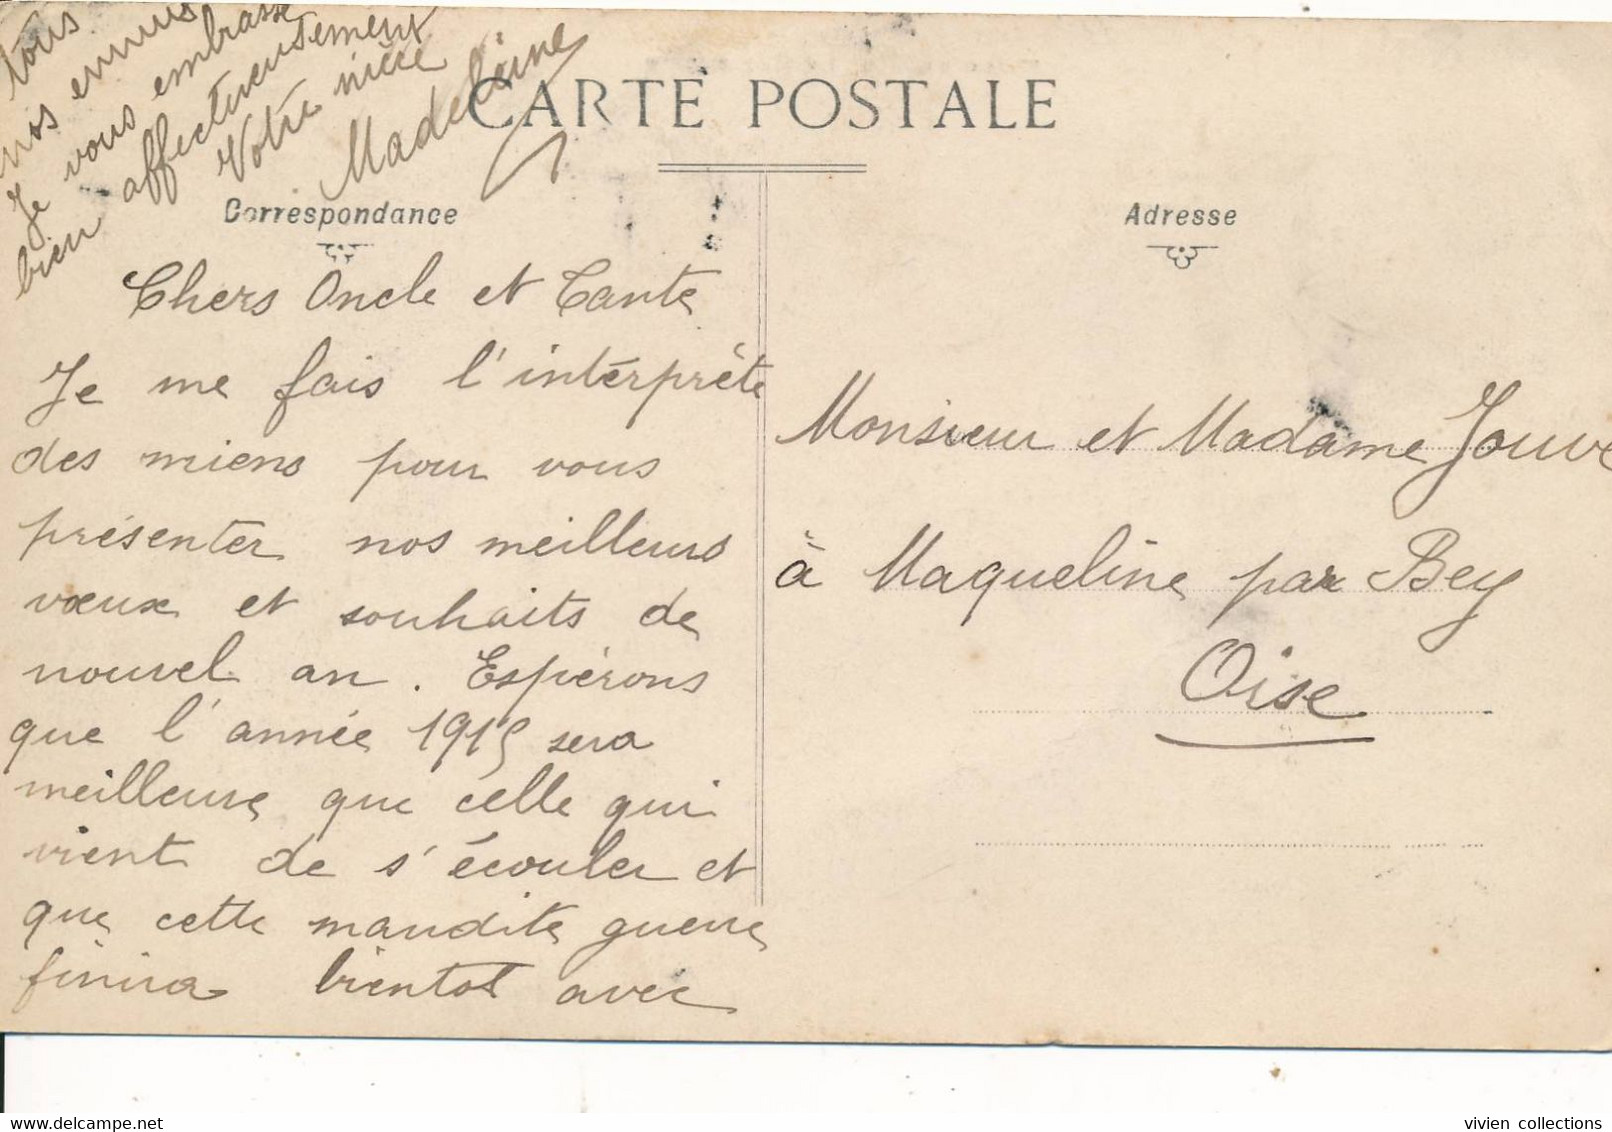 CARTE POSTALE
Correspondance
Chers Oncle et Tante
Je me fais l'intérprète
des miens pour vous
présenter nos meilleurs
vœux et souhaits de
nouvel an. Espérons
que l'année 1915 sera
meilleure que celle qui
vient de s'écouler et
que cette maudite guerre
finira bientot avec
tous
nos ennuis
Je vous embrasse
bien affectueusement
Votre nièce
Madeleine
Adresse
Monsieur et Madame Jouve
à Maqueline par Bey
Oise
vivien collections